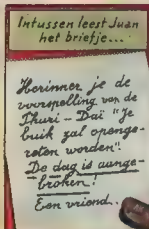 Intussen leest Juan
het briefje...
Herinner je de
voorspelling van de
Thuri-Daï "Je
buik zal openge-
reten worden".
De dag is aange-
broken!
Een vriend..